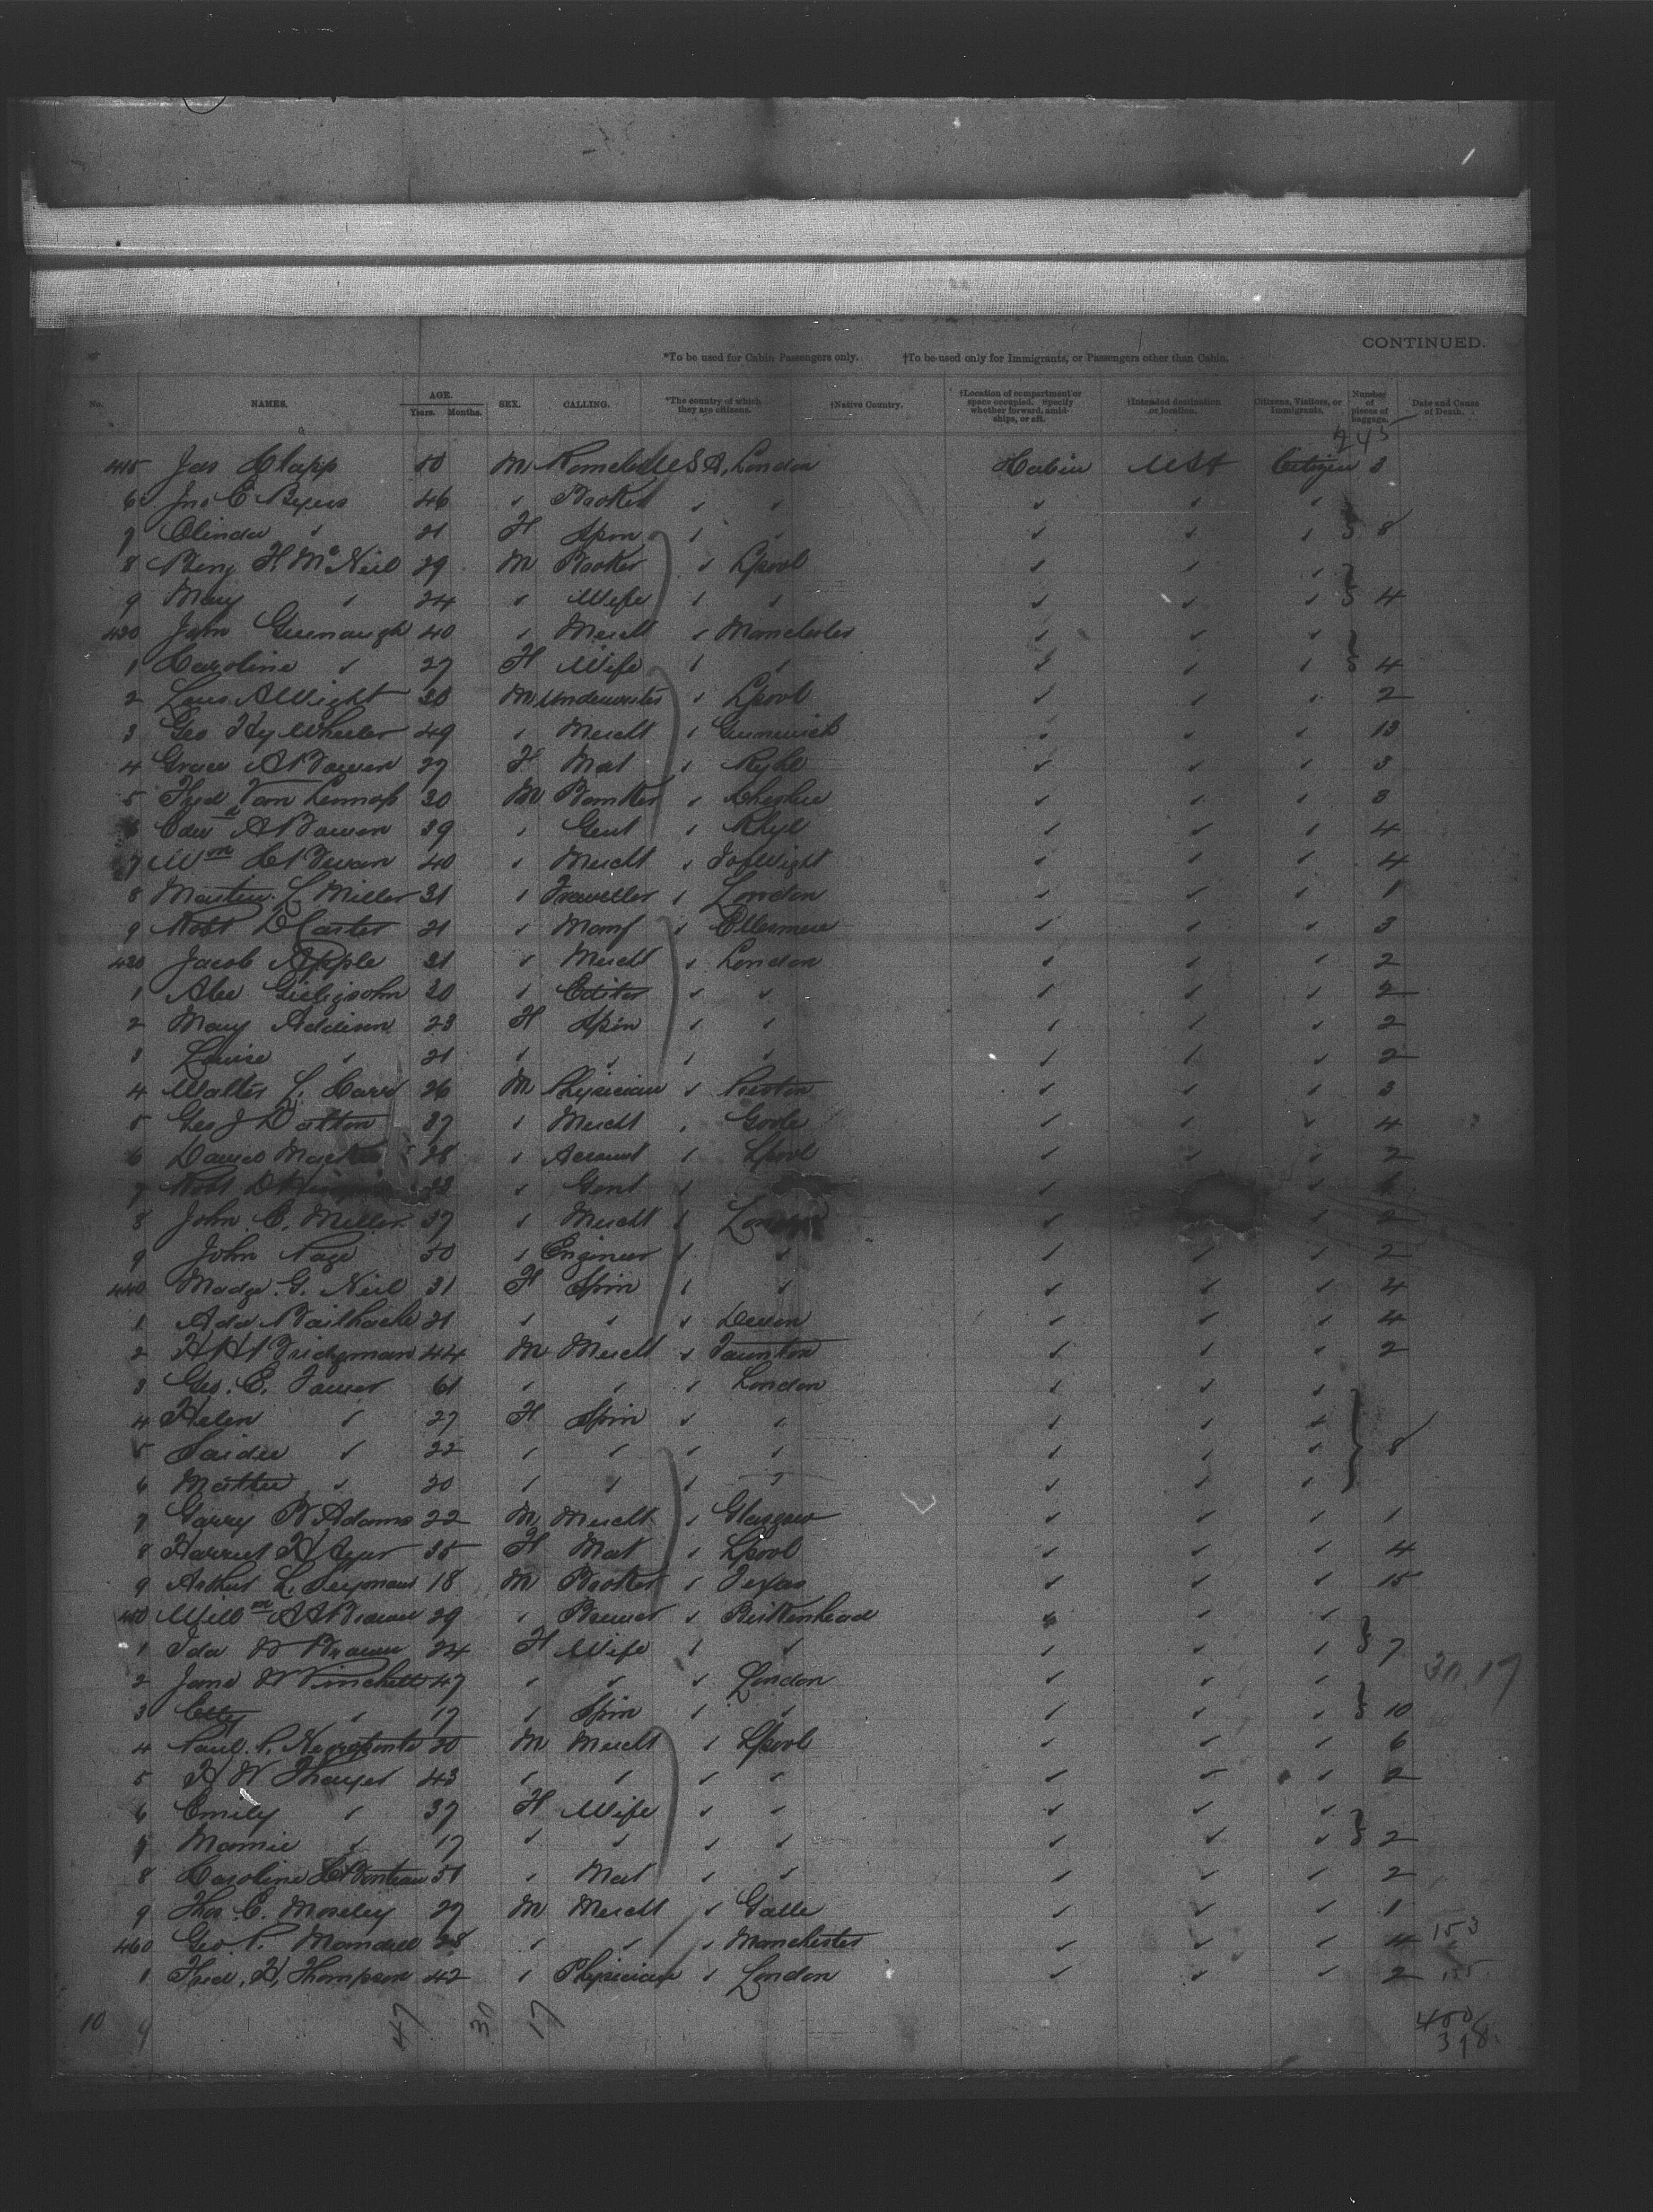 CONTINUED.
*To be used for Cabin Passengers only. †To be used only for Immigrants, or Passengers other than Cabin.
No. NAMES. AGE. Years. Months. SEX. CALLING. *The country of which they are citizens. †Native Country. †Location of compartment or space occupied. Specify whether forward, amidships, or aft. †Intended destination or location. Citizens, Visitors, or Immigrants. Number of pieces of baggage. Date and Cause of Death.
243
415 Jas Clapp 50 M USA, London Cabin USA Citizen 3
6 Jno E Byers 46 " Broker " " " " "
7 Olinda " 21 F Spin " " " " " 8
8 Benj F. McNeil 29 M Broker " Lpool " " "
9 Mary " 24 " Wife " " " " " 4
420 John 40 " Mercht " Manchester " " "
1 Caroline " 27 F Wife " " " " " 4
2 Louis A Wight 30 M Underwriter " Lpool " " " 2
3 Geo Hy Wheeler 49 " Mercht " " " " 13
4 Grace A Bowen 27 F Mat " Ryhl " " " 3
5 Fred Van Lennop 30 M Banker " Cheshire " " " 3
6 Edwd A Bowen 39 " Gent " Rhyl " " " 4
7 Wm 40 " Mercht " I of Wight " " " 4
8 L Miller 31 " Traveller " London " " " 1
9 Robt D Carter 21 " Manf " Ellesmere " " " 3
430 Jacob Apple 21 " Mercht " London " " " 2
1 Alex 30 " Editor " " " " " 2
2 Mary Addison 23 F Spin " " " " " 2
3 Louise " 21 " " " " " " " 2
4 Walter L. Carr 26 M Physician " Preston " " " 3
5 Geo J Datton 37 " Mercht " Goole " " " 4
6 28 " Account " Lpool " " " 2
7 Robt " Gent " " "
8 John C. Miller 37 " Mercht " London " " 2
9 John Page 50 " Engineer " " " " " 2
440 Madge G. Neil 31 F Spin " " " " " 4
1 Ada Bailhache 21 " " " Devon " " " 4
2 H H Bridgman 44 M Mercht " Taunton " " " 2
3 Geo. E. Tower 61 " " " London " " "
4 Helen " 27 F Spin " " " " "
5 Saidee " 22 " " " " " " " 8
6 Mattie " 20 " " " " " " "
7 Garry W Adams 22 M Mercht " Glasgow " " " 1
8 Harriet H 35 F Mat " Lpool " " " 4
9 Arthur L. Seymour 18 M Broker " Texas " " " 15
450 Willm A A Brower 29 " " Birkenhead " " "
1 Ida W 24 F Wife " " " " " 7
2 Jane W 47 " " " London " " "
30 17
3 Etty " 17 " Spin " " " " " 10
4 Paul P. Negroponte 20 M Mercht " Lpool " " " 6
5 H W Thayer 43 " " " " " " " 2
6 Emily " 37 F Wife " " " " "
7 Mamie " 17 " " " " " " " 2
8 Caroline 51 " Mat " " " " " 2
9 Thos E. Moseley 27 M Mercht " Galle " " " 1
460 Geo P. Mandell 28 " " " Manchester " " " 4 153
1 Fred. H. Thompson 42 " Physician " London " " " 2 155
10 9 47 30 17 400
398